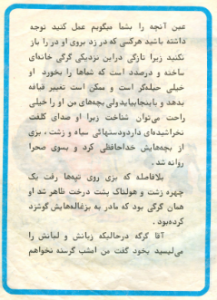 عین آنچه را بشما میگویم عمل کنید توجه
داشته باشید هرکسی که در زد بروی او در را باز
نکنید زیرا تازگی دراین نزدیکی گرگی خانه‌ای
ساخته و درصدد است که شماها را بخورد او
خیلی حیله‌گر است و ممکن است تغییر قیافه
بدهد و باینجا بیاید ولی بچه‌های من او را خیلی
راحت می‌توان شناخت زیرا او صدای گفت
نخراشیده‌ای دارد و دستهائی سیاه و زشت ، بزی
از بچه‌هایش خداحافظی کرد و بسوی صحرا
روانه شد .
بلافاصله که بزی روی تپه‌ها رفت یک
چهره زشت و هولناک پشت درخت ظاهر شد او
همان گرگی بود که مادر به بزغاله‌هایش گوشزد
کرده‌بود .
آقا گرگه در حالیکه زبانش و لبانش را
می‌لیسید بخود گفت من امشب گرسنه نخواهم